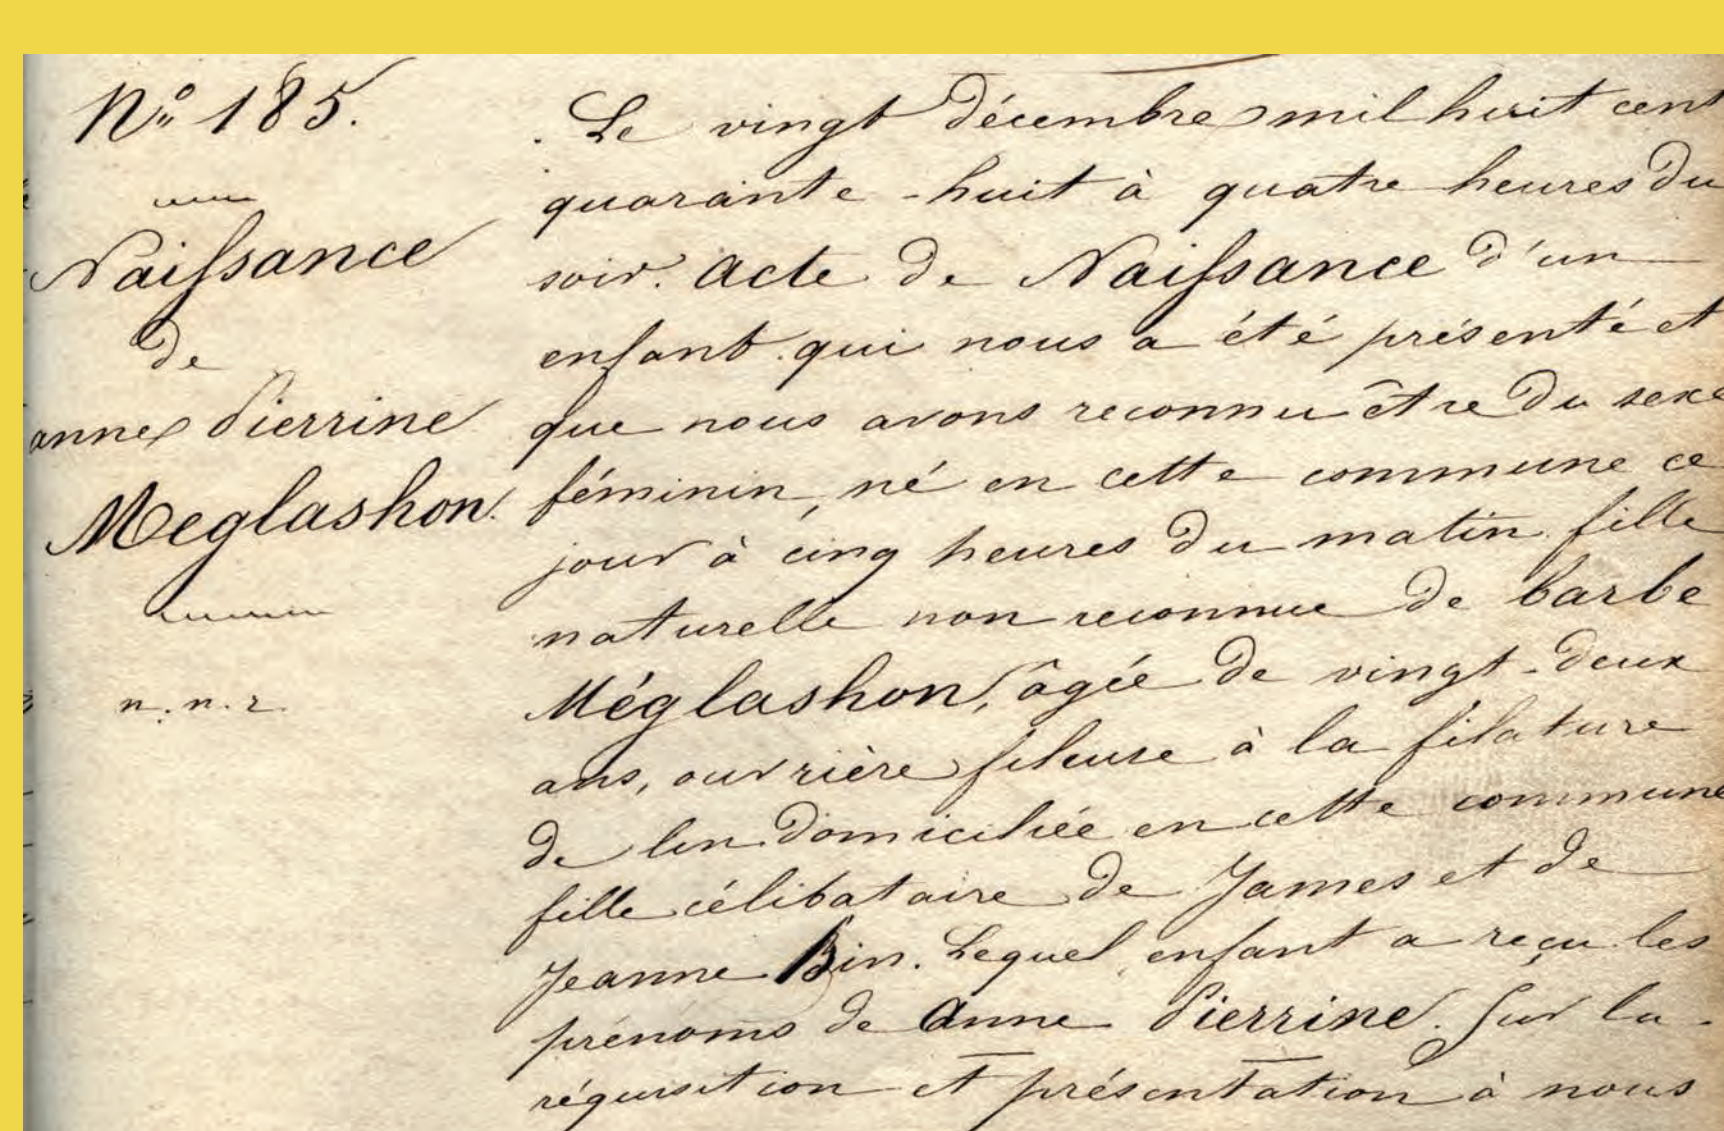 N° 185.
Naissance
de
anne Pierrine
Meglashon.
n. n. r.
Le vingt décembre mil huit cent
quarante-huit à quatre heures du
soir. Acte de Naissance d'un
enfant qui nous a été présenté et
que nous avons reconnu être du sexe
féminin, né en cette commune ce
jour à cinq heures du matin fille
naturelle non reconnue de barbe
Méglashon, âgée de vingt-deux
ans, ouvrière fileuse à la filature
de lin domiciliée en cette commune
fille célibataire de James et de
Jeanne Bin. Lequel enfant a reçu les
prénoms de Anne Pierrine. Sur la
réquisition et présentation à nous